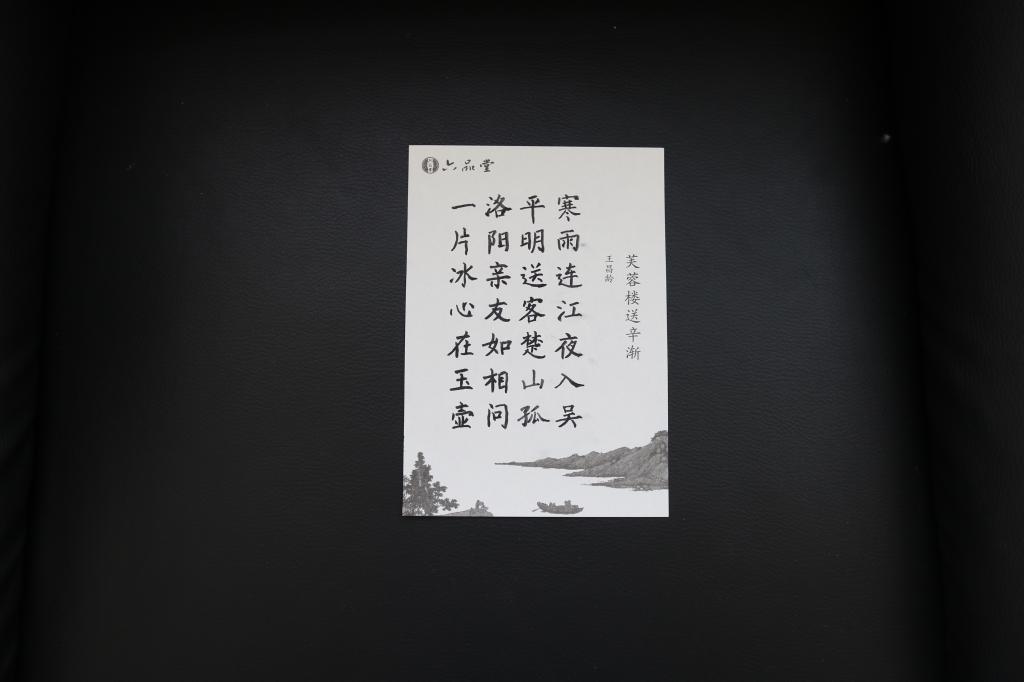 六品堂
芙蓉楼送辛渐
王昌龄
寒雨连江夜入吴
平明送客楚山孤
洛阳亲友如相问
一片冰心在玉壶